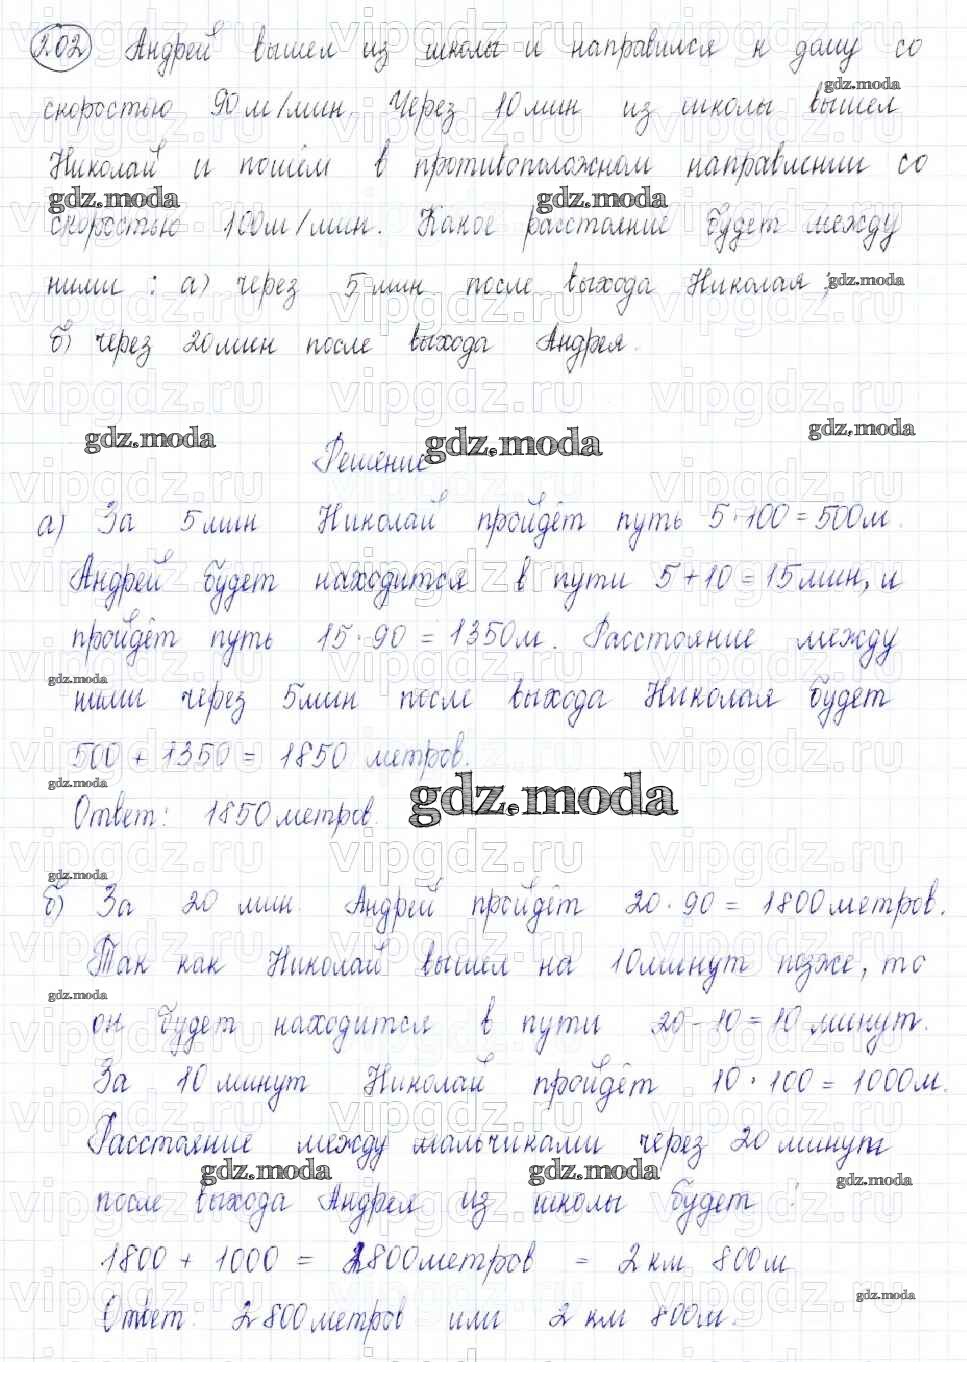 3.02 Андрей вышел из школы и направился к дому со
скоростью 90 м/мин. Через 10 мин из школы вышел
Николай и пошём в противоположном направлении со
скоростью 100 м/мин. Какое расстояние будет между
ними : а) через 5 мин после выхода Николая ;
б) через 20 мин после выхода Андрея.
Решение
а) За 5 мин Николай пройдёт путь 5 · 100 = 500 м.
Андрей будет находится в пути 5 + 10 = 15 мин, и
пройдёт путь 15 · 90 = 1350 м. Расстояние между
ними через 5 мин после выхода Николая будет
500 + 1350 = 1850 метров.
Ответ: 1850 метров.
б) За 20 мин. Андрей пройдёт 20 · 90 = 1800 метров.
Так как Николай вышел на 10 минут позже, то
он будет находится в пути 20 - 10 = 10 минут.
За 10 минут Николай пройдёт 10 · 100 = 1000 м.
Расстояние между мальчиками через 20 минут
после выхода Андрея из школы будет :
1800 + 1000 = 2800 метров = 2 км 800 м
Ответ: 2800 метров или 2 км 800 м.
gdz.moda
vipgdz.ru